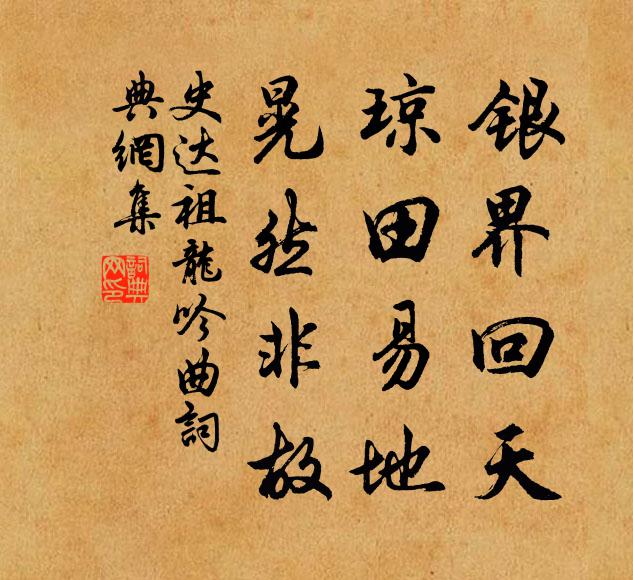 银界回天
琼田易地
晃然非故
史达祖龍吟曲詞
典網集
詞典
网印